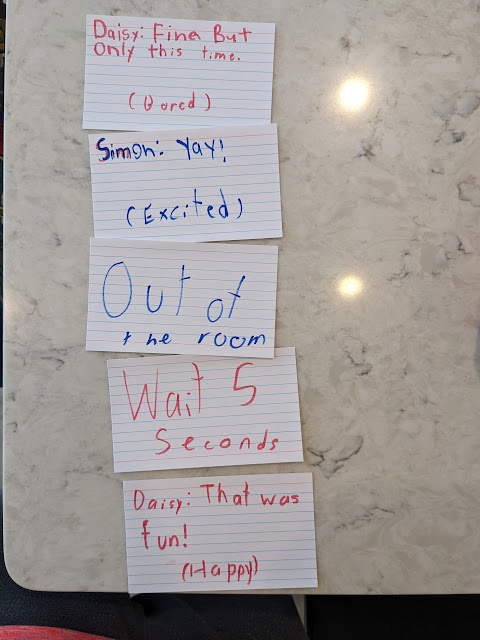 Daisy: Fine But
Only this time.
(Bored)
Simon: Yay!
(Excited)
Out of
the room
Wait 5
Seconds
Daisy: That was
fun!
(Happy)